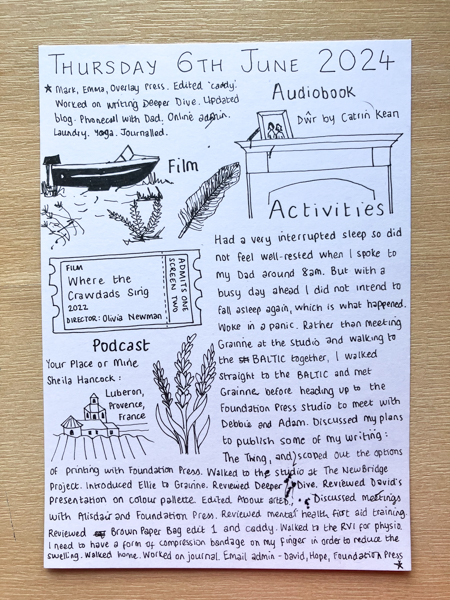 THURSDAY 6TH JUNE 2024
★ Mark, Emma, Overlay Press. Edited 'caddy'.
Worked on writing Deeper Dive. Updated
blog. Phonecall with Dad. Online admin.
Laundry. Yoga. Journalled.
Audiobook
Dŵr by Catrin Kean
Film
FILM
Where the
Crawdads Sing
2022
DIRECTOR: Olivia Newman
ADMITS ONE
SCREEN TWO
Podcast
Your Place or Mine
Sheila Hancock:
Luberon,
Provence,
France
Activities
Had a very interrupted sleep so did
not feel well-rested when I spoke to
my Dad around 8am. But with a
busy day ahead I did not intend to
fall asleep again, which is what happened.
Woke in a panic. Rather than meeting
Grainne at the studio and walking to
the BALTIC together, I walked
straight to the BALTIC and met
Grainne before heading up to the
Foundation Press studio to meet with
Debbie and Adam. Discussed my plans
to publish some of my writing:
The Twing, and scoped out the options
of printing with Foundation Press. Walked to the studio at The NewBridge
Project. Introduced Ellie to Grainne. Reviewed Deeper Dive. Reviewed David's
presentation on colour pallette. Edited About artist. Discussed meetings
with Alisdair and Foundation Press. Reviewed mental health first aid training.
Reviewed Brown Paper Bag edit 1 and caddy. Walked to the RVI for physio.
I need to have a form of compression bandage on my finger in order to reduce the
swelling. Walked home. Worked on journal. Email admin - David, Hope, Foundation Press
★